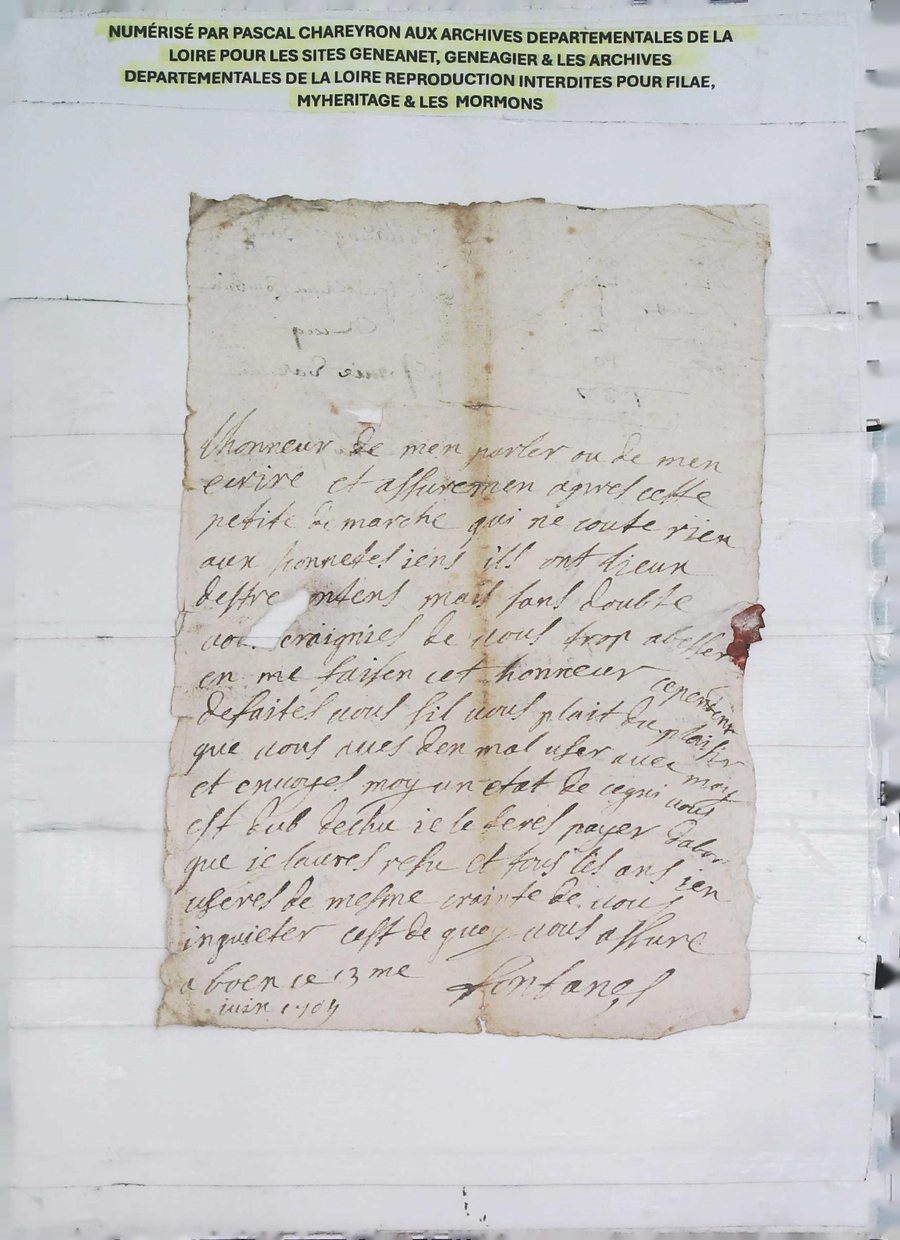 NUMÉRISÉ PAR PASCAL CHAREYRON AUX ARCHIVES DEPARTEMENTALES DE LA
LOIRE POUR LES SITES GENEANET, GENEAGIER & LES ARCHIVES
DEPARTEMENTALES DE LA LOIRE REPRODUCTION INTERDITES POUR FILAE,
MYHERITAGE & LES MORMONS
lhonneur de men parler ou de men
ecrire et assuremen apres cette
petite de marche qui ne coute rien
aux honnetes iens ils ont lieux
destre ntens mais sans doubte
vou craignies de vous trop abesser
en me faisen cet honneur cependent
defaites vous sil vous plait du plaisir
que vous aves den mal user avec moy
et envoyes moy un etat de cequi vous
est dub dechu ie le feres payer dabor
que ie laures resu et tous les ans ien
useres de mesme crainte de vous
inquieter cest de quoy vous assure
a boen ce 13 me Fontanes
iuin